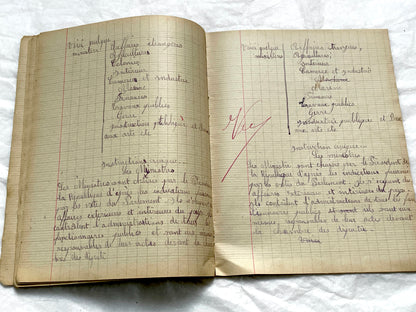 Voici quelques
ministres
Affaires étrangères
Agriculture
Colonies
Intérieur
Commerce et industrie
Marine
Finances
Travaux publics
Guerre
instruction publique et Beaux
arts etc
Instruction civique
Les Ministres
Les Ministres sont choisis par le Président de
la République d'après les indications
par les votes du Parlement
affaires extérieures et intérieures du pays
contrôlent l'administration de tous les
fonctionnaires publics et sont
responsables de leurs actes devant la
des députés
Voici quelques
ministres
Affaires étrangères
Agriculture
Intérieur
Commerce et industrie
Marine
Finances
Travaux publics
Guerre
instruction publique et Beaux
arts etc
Vu
Instruction civique
Les ministres
Les Ministres sont choisis par le Président de
la République d'après les indications
par les votes du Parlement
affaires extérieures et intérieures du pays
contrôlent l'administration de tous les
fonctionnaires publics et sont
responsables de leurs actes devant
la chambre des députés